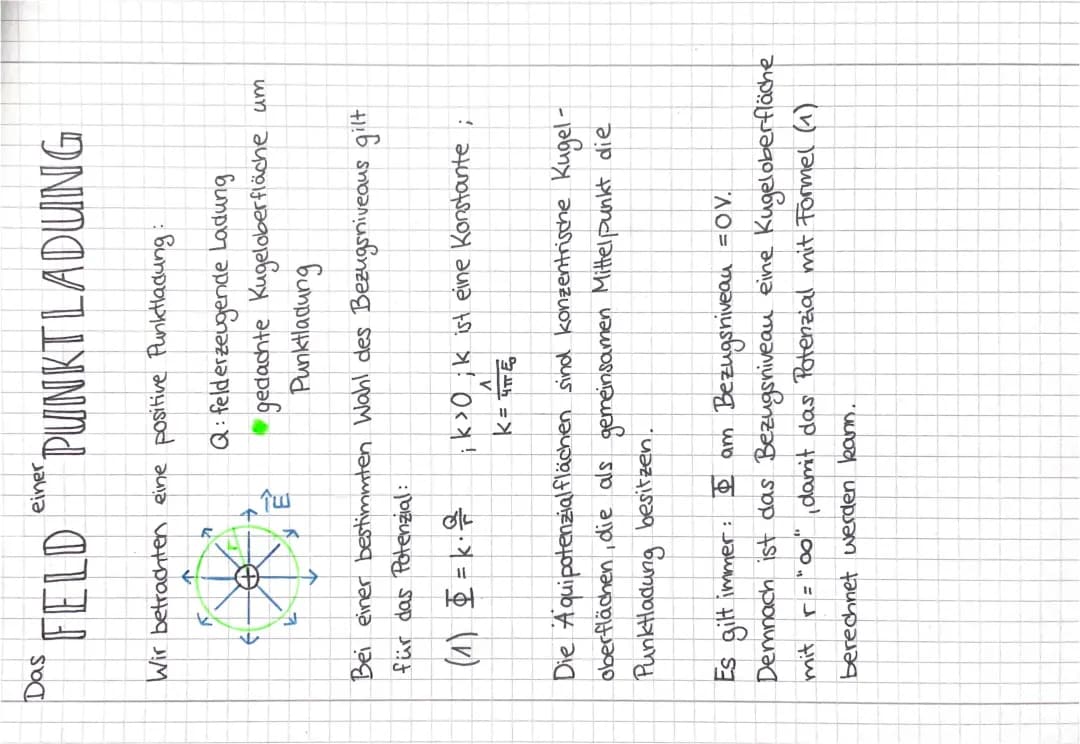 Das FELD einer PUNKTLADUNG
Wir betrachten eine positive Punktladung:
Q: felderzeugende Ladung
gedachte Kugeloberfläche um
Punktladung
+
r
E
Bei einer bestimmten Wahl des Bezugsniveaus gilt
für das Potenzial:
(1) Φ = k · Q/r ; k>0 ; k ist eine Konstante ;
k = 1/4πE₀
Die Äquipotenzialflächen sind konzentrische Kugel-
oberflächen, die als gemeinsamen Mittelpunkt die
Punktladung besitzen.
Es gilt immer: Φ am Bezugsniveau = 0V.
Demnach ist das Bezugsniveau eine Kugeloberfläche
mit r = "∞", damit das Potenzial mit Formel (1)
berechnet werden kann.